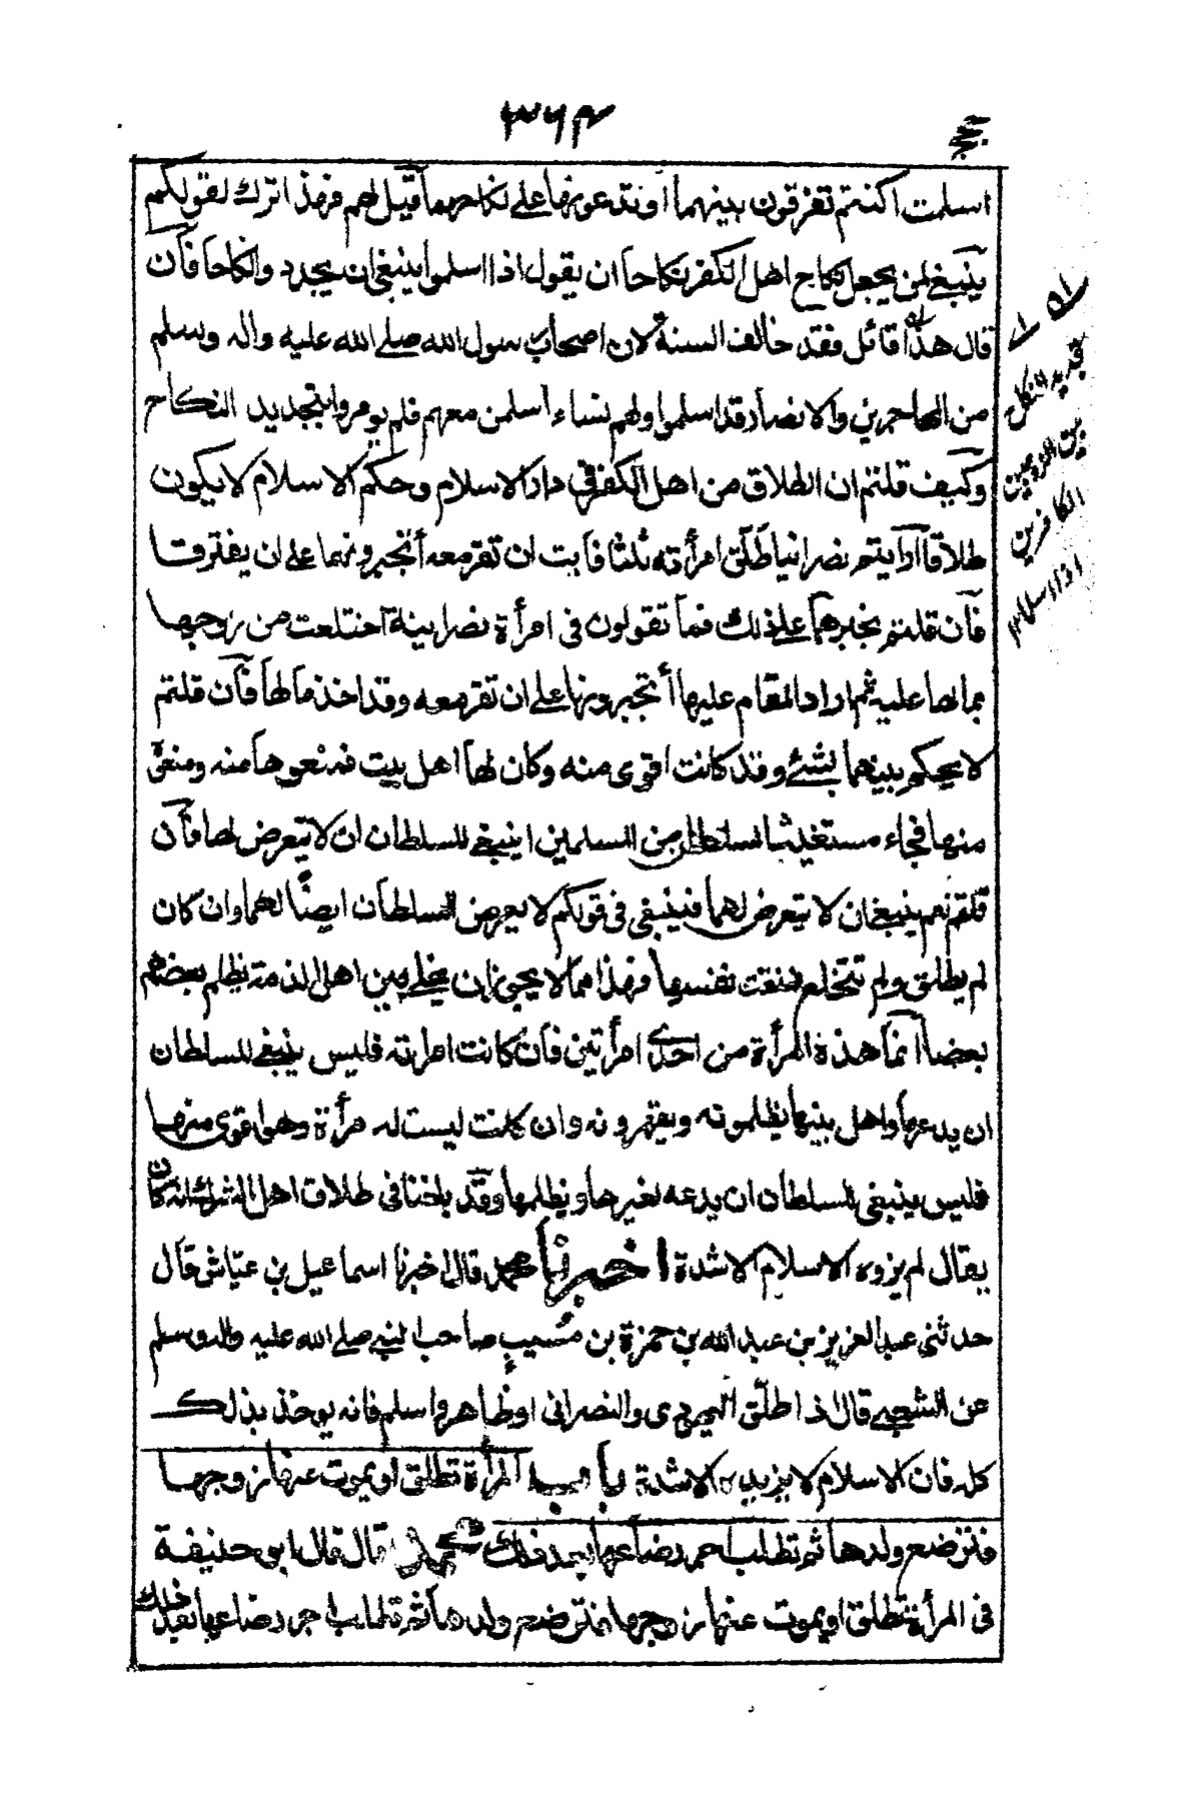 ٣٦٤
اسلمت اكنتم تفرقون بينهما او تدعونها على نكاحهما قيل لهم فهذا اترك لقولكم
ينبغي لمن يجعل نكاح اهل الكفر نكاحا ان يقول اذا اسلموا ينبغي ان يجددوا نكاحا فان
قال هذا قائل فقد خالف السنة لان اصحاب رسول الله صلى الله عليه واله وسلم
من المهاجرين والانصار قد اسلموا ولهم نساء اسلمن معهم فلم يومروا بتجديد النكاح
وكيف قلتم ان الطلاق من اهل الكفر في دار الاسلام وحكم الاسلام لا يكون
طلاقا ارايتم نصرانيا طلق امرأته ثلثا فابت ان تقر معه أتجبرونها على ان يفترقا
فان قلتم نجبرهما على ذلك فما تقولون في امرأة نصرانية اختلعت من زوجها
بمالها عليه ثم اراد المقام عليها أتجبرونها على ان تقر معه وقد اخذ مالها فان قلتم
لا يحكم بينهما بشئ وقد كانت اقوى منه وكان لها اهل بيت فمنعوها منه ومنعوه
منها فجاء مستغيثا لسلطان من المسلمين اينبغي للسلطان ان لا يتعرض لها فان
قلتم نعم ينبغي ان لا يتعرض لهما فينبغي في قولكم لا يعرض السلطان ايضا لهما وان كان
لم يطلق ولم تختلع فمنعت نفسها فهذا مما لا يجوز ان يخلى بين اهل الذمة يظلم بعضهم
بعضا انما هذة المرأة من احدى امرأتين فان كانت امرأته فليس ينبغي للسلطان
ان يدعها واهل بيتها يظلمونه ويقهرونه وان كانت ليست له مرأة وهو اقوى منها
فليس ينبغي للسلطان ان يدعه لغيرها ويظلمها وقد بلغنا في طلاق اهل الشرك انه كان
يقال لم يزده الاسلام الا شدة اخبرنا محمد قال اخبرنا اسماعيل بن عياش قال
حدثني عبد العزيز بن عبد الله بن حمزة بن صهيب صاحب النبي صلى الله عليه واله وسلم
عن الشعبي قال اذا طلق اليهودي والنصراني او ظاهر واسلم فانه يوخذ بذلك
كله فان الاسلام لا يزيده الا شدة باب المرأة تطلق او يموت عنها زوجها
فترضع ولدها ثم تطلب اجر رضاعها بعد ذلك محمد قال قال ابو حنيفة
في المرأة تطلق او يموت عنها زوجها فترضع ولدها ثم تطلب اجر رضاعها بعد ذلك
تجديد النكاح
بين الزوجين
الكافرين
اذا اسلما